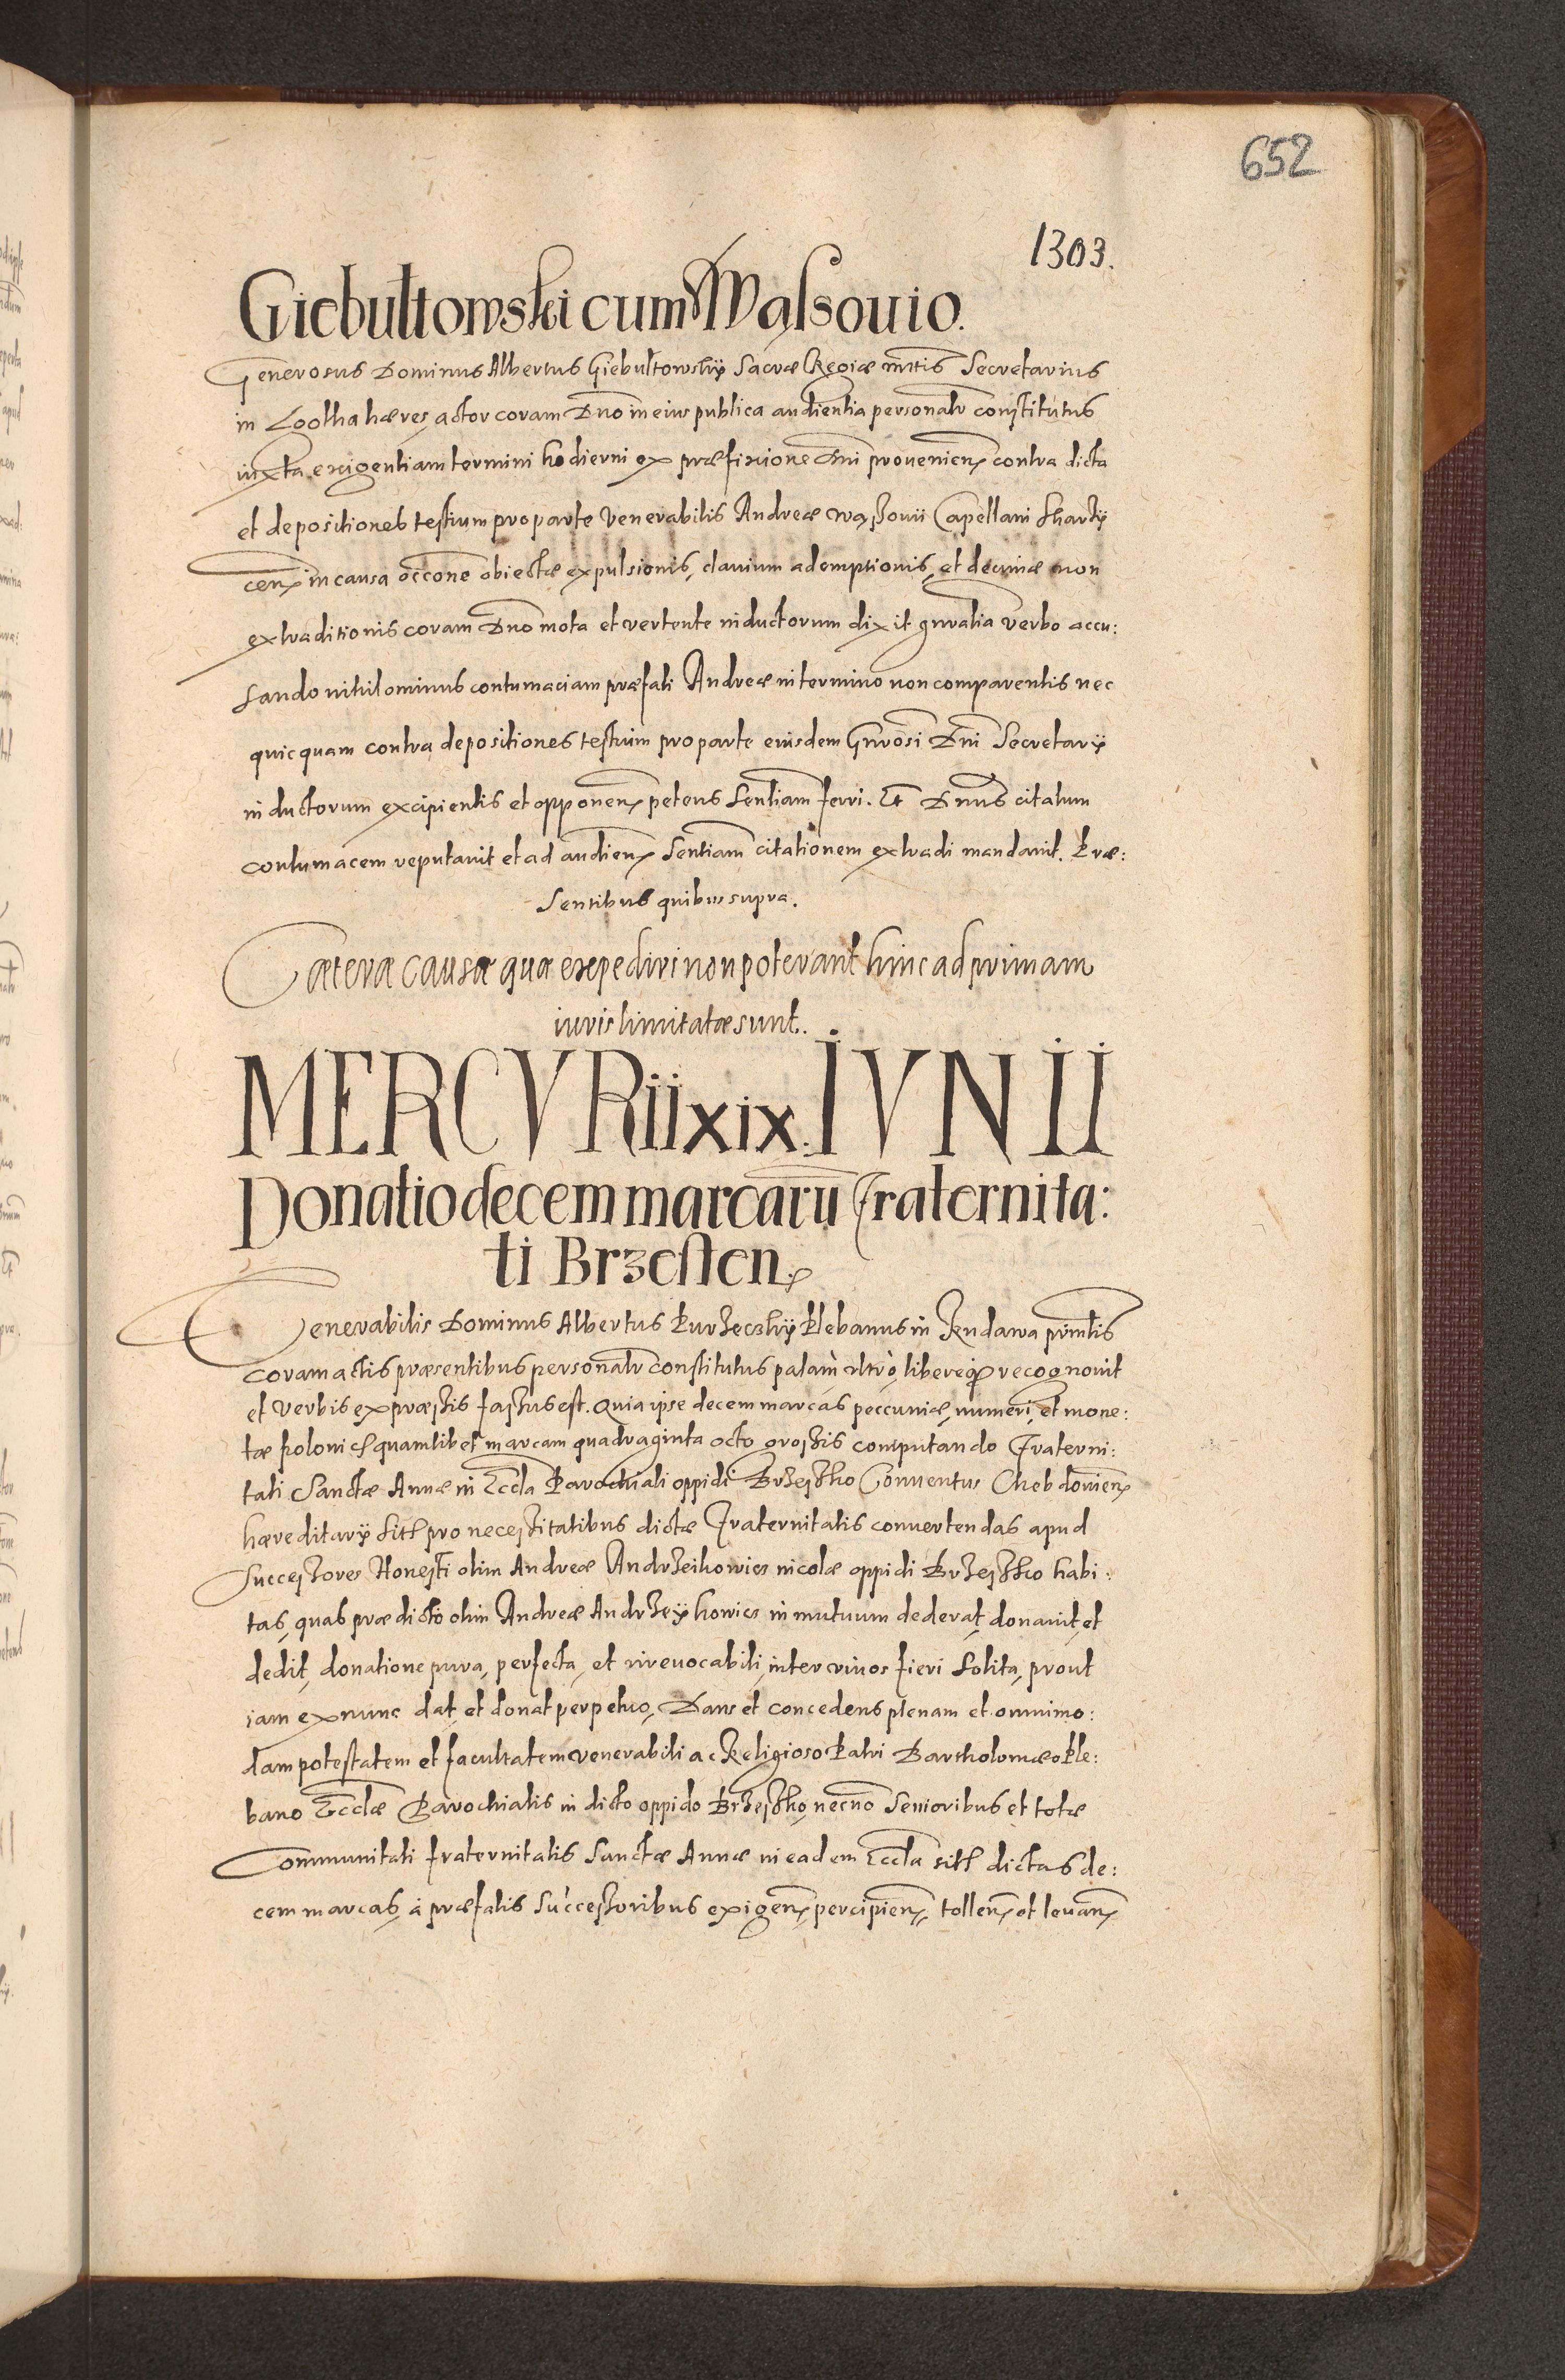 652
1303.
Giebułtowski cum Wassouio.
Generosus Dominus Albertus Giebułtowsky Sacræ Regiæ mtis Secretarius
in Lgotha hæres actor coram Dno in eius publica audientia personalr constitutus
iuxta exigentiam termini hodierni ex præfixione Dni prouenien contra dicta
et depositiones testium pro parte Venerabilis Andreæ Wassouii Capellani
cen in causa occone obiectæ expulsionis, clauium ademptionis, et decimæ non
extraditionis coram Dno mota et vertente inductorum dixit gnralia verbo accu:
sando nihilominus contumaciam præfati Andreæ in termino non comparentis nec
quicquam contra depositiones testium pro parte eiusdem Gnrosi Dni Secretarij
inductorum excipientis et opponen petens Sentiam ferri. Et Dnus citatum
contumacem reputauit et ad audien Sentiam citationem extradi mandauit. Præ:
sentibus quibus supra.
Cæteræ causæ quæ expediri non poterant hinc ad primam
iuris limitatæ sunt.
MERCVRii xix. IVNII
Donatio decem marcarū Fraternita:
ti Brzesten
Venerabilis Dominus Albertus Plebanus in Rudawa prīntis
coram actis præsentibus personalr constitutus palam ultrò, libereq recognouit
et verbis expræssis fassus est. Quia ipse decem marcas peccuniæ, numeri, et mone:
tæ polonicl quamlibet marcam quadraginta octo grossis computando Fraterni:
tati Sanctæ Annæ in Eccla Parochiali oppidi Brzessko Conuentus Chebdouien
hæreditarij sitl pro necessitatibus dictæ Fraternitatis conuertendas apud
Successores Honesti olim Andreæ Andrzeikowicz incolæ oppidi Brzessko habi:
tas, quas prædicto olim Andreæ Andrzeykowicz in mutuum dederat, donauit, et
dedit, donatione pura, perfecta, et irreuocabili, inter viuos fieri solita, prout
iam ex nunc dat, et donat perpetuo, Dans et concedens plenam et omnimo:
dam potestatem et facultatem venerabili ac Religioso Patri Bartholomæo Ple:
bano Ecclæ Parochialis in dicto oppido Brzessko, necno Senioribus et totæ
Communitati fraternitatis Sanctæ Annæ in eadem Eccla sitl dictas de:
cem marcas, à præfatis successoribus exigen, percipien, tollen, et leuan